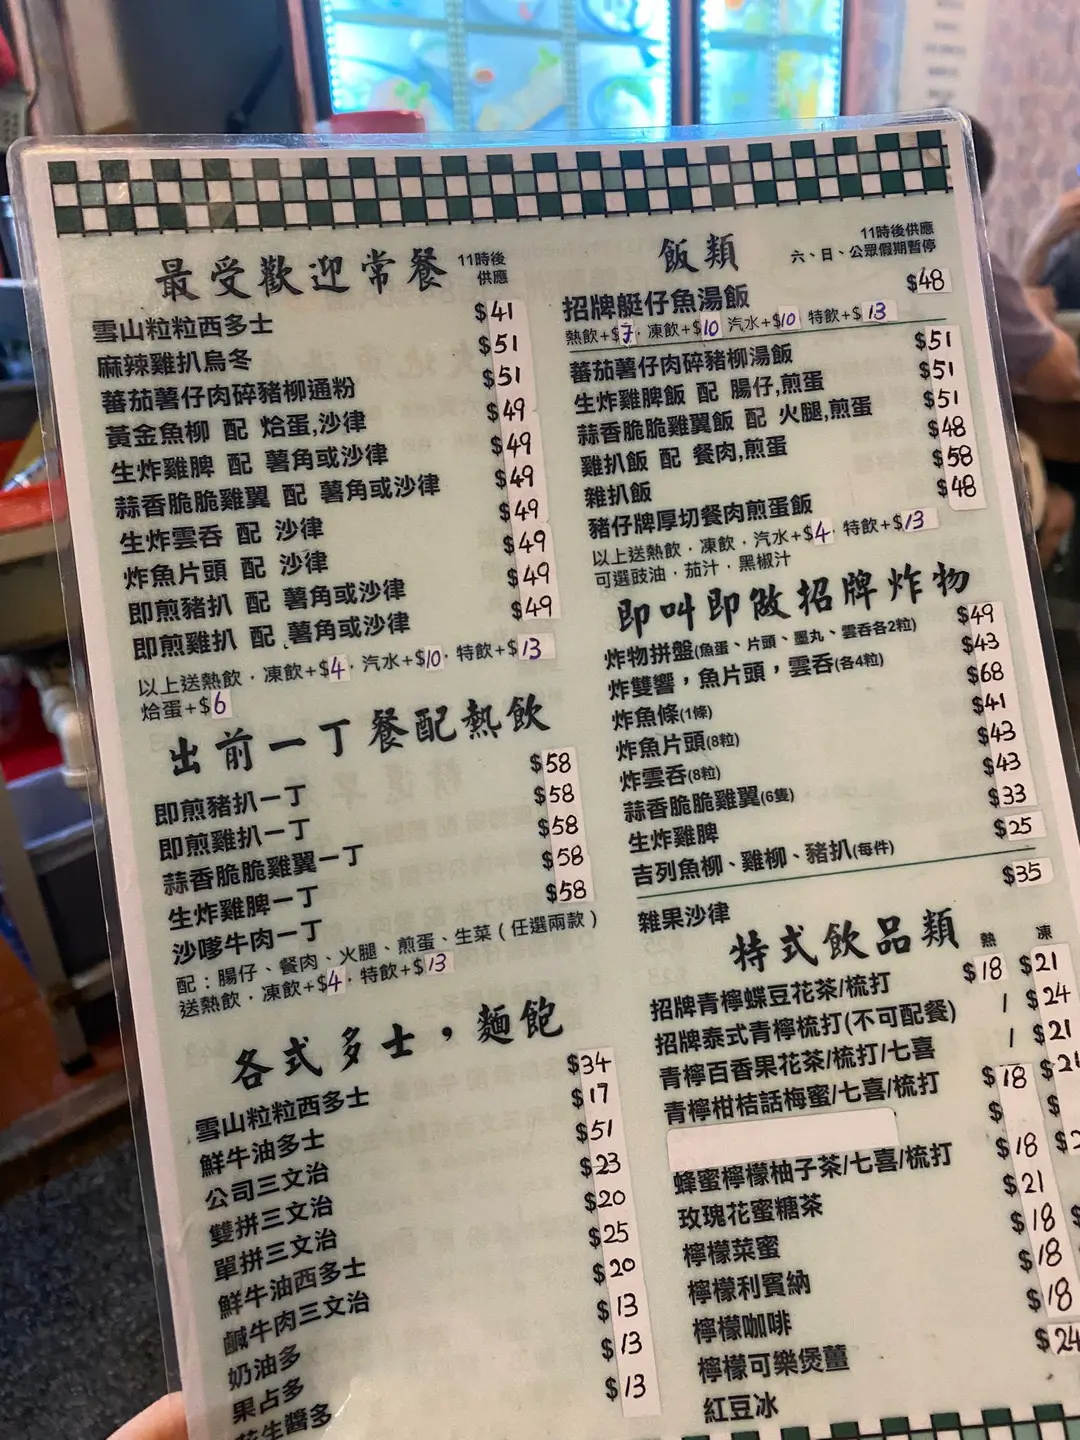 最受歡迎常餐 11時後供應
雪山粒粒西多士 $41
麻辣雞扒烏冬 $51
蕃茄薯仔肉碎豬柳通粉 $51
黃金魚柳 配 烚蛋,沙律 $49
生炸雞脾 配 薯角或沙律 $49
蒜香脆脆雞翼 配 薯角或沙律 $49
生炸雲吞 配 沙律 $49
炸魚片頭 配 沙律 $49
即煎豬扒 配 薯角或沙律 $49
即煎雞扒 配 薯角或沙律 $49
以上送熱飲．凍飲+$4．汽水+$10．特飲+$13
烚蛋+$6
出前一丁餐配熱飲
即煎豬扒一丁 $58
即煎雞扒一丁 $58
蒜香脆脆雞翼一丁 $58
生炸雞脾一丁 $58
沙嗲牛肉一丁 $58
配：腸仔、餐肉、火腿、煎蛋、生菜（任選兩款）
送熱飲．凍飲+$4．特飲+$13
各式多士，麵飽
雪山粒粒西多士 $34
鮮牛油多士 $17
公司三文治 $51
雙拼三文治 $23
單拼三文治 $20
鮮牛油西多士 $25
鹹牛肉三文治 $20
奶油多 $13
果占多 $13
花生醬多 $13
飯類 11時後供應
六、日、公眾假期暫停
招牌艇仔魚湯飯 $48
熱飲+$7．凍飲+$10 汽水+$10 特飲+$13
蕃茄薯仔肉碎豬柳湯飯 $51
生炸雞脾飯 配 腸仔,煎蛋 $51
蒜香脆脆雞翼飯 配 火腿,煎蛋 $51
雞扒飯 配 餐肉,煎蛋 $48
雜扒飯 $58
豬仔牌厚切餐肉煎蛋飯 $48
以上送熱飲．凍飲．汽水+$4．特飲+$13
可選豉油．茄汁．黑椒汁
即叫即做招牌炸物
炸物拼盤(魚蛋、片頭、墨丸、雲吞各2粒) $49
炸雙響，魚片頭，雲吞(各4粒) $43
炸魚條(1條) $68
炸魚片頭(8粒) $41
炸雲吞(8粒) $43
蒜香脆脆雞翼(6隻) $43
生炸雞脾 $33
吉列魚柳、雞柳、豬扒(每件) $25
雜果沙律 $35
特式飲品類 熱 凍
招牌青檸蝶豆花茶/梳打 $18 $21
招牌泰式青檸梳打(不可配餐) / $24
青檸百香果花茶/梳打/七喜 / $21
青檸柑桔話梅蜜/七喜/梳打 $18 $21
$ $
蜂蜜檸檬柚子茶/七喜/梳打 $18 $2
玫瑰花蜜糖茶 $21
檸檬菜蜜 $18 $
檸檬利賓納 $18
檸檬咖啡 $18
檸檬可樂煲薑 $24
紅豆冰